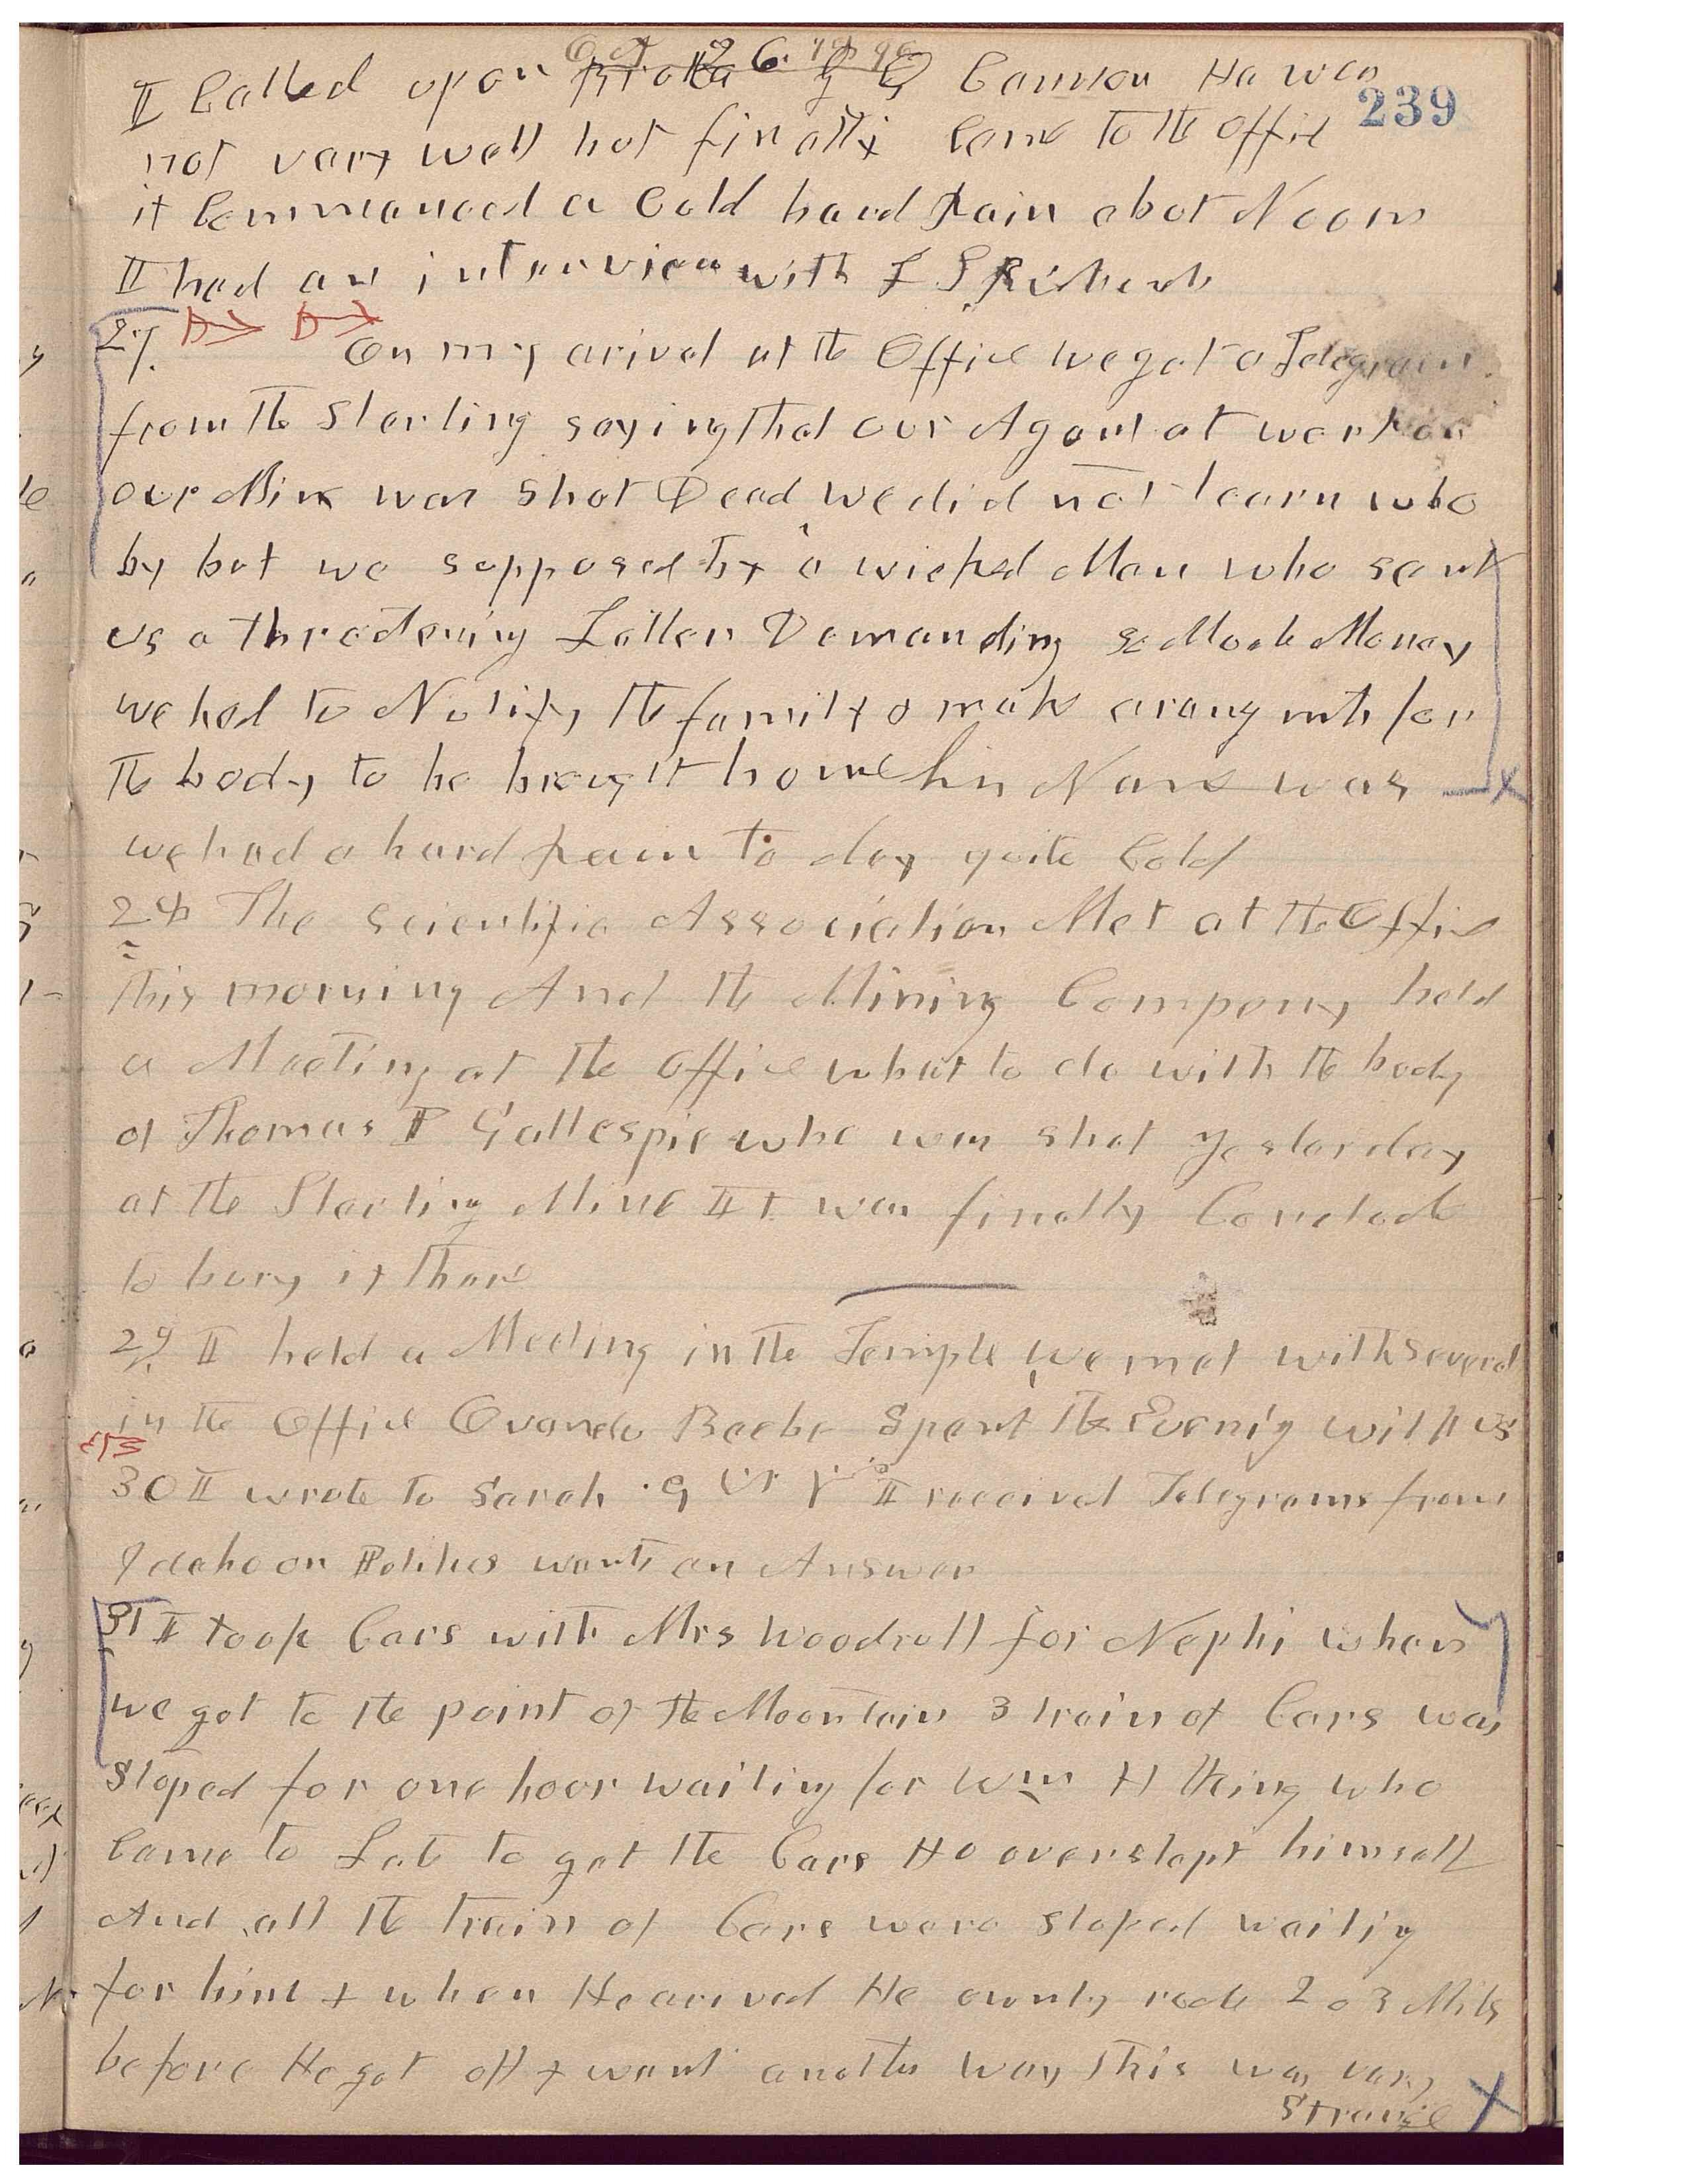 Oct 26 1896
239
I Called upon Brother G Q Cannon He was
not very well but finally Come to the Office
it Commenced a Cold hard Rain about Noon
I had an interview with F S Richards
27. On my arival at the Office we got a Telegram
from the Sterling saying that our Agent at work on
our Mine was shot Dead we did not learn who
by but we supposed by a wicked Man who sent
us a threatening Letter Demanding so Much Money
we had to Notify the family & make arangmts for
the body to be brought home his Name was
we had a hard Rain to day quite Cold
28 The Scientific Association Met at the Office
this morning And the Mining Company held
a Meeting at the office what to do with the body
of Thomas P Gallespie who was shot yesterday
at the Sterling Mine It was finally Conclude
to bury it there
29. I held a Meeting in the Temple we met with several
in the Office Ovando Beebe Spent the Evenig with us
30 I wrote to Sarah I received Telegrams from
Idaho on Politics wants an Answer
31 I took Cars with Mrs Woodruff for Nephi when
we got to the point of the Mountain 3 train of Cars was
stoped for one hour waiting for Wm H King who
Came to Late to get the Cars He overslept himself
And all the train of Cars were stoped waitig
for him & when He arived He ownly rode 2 o 3 Mils
before He got off & went another way This was vary
Strange